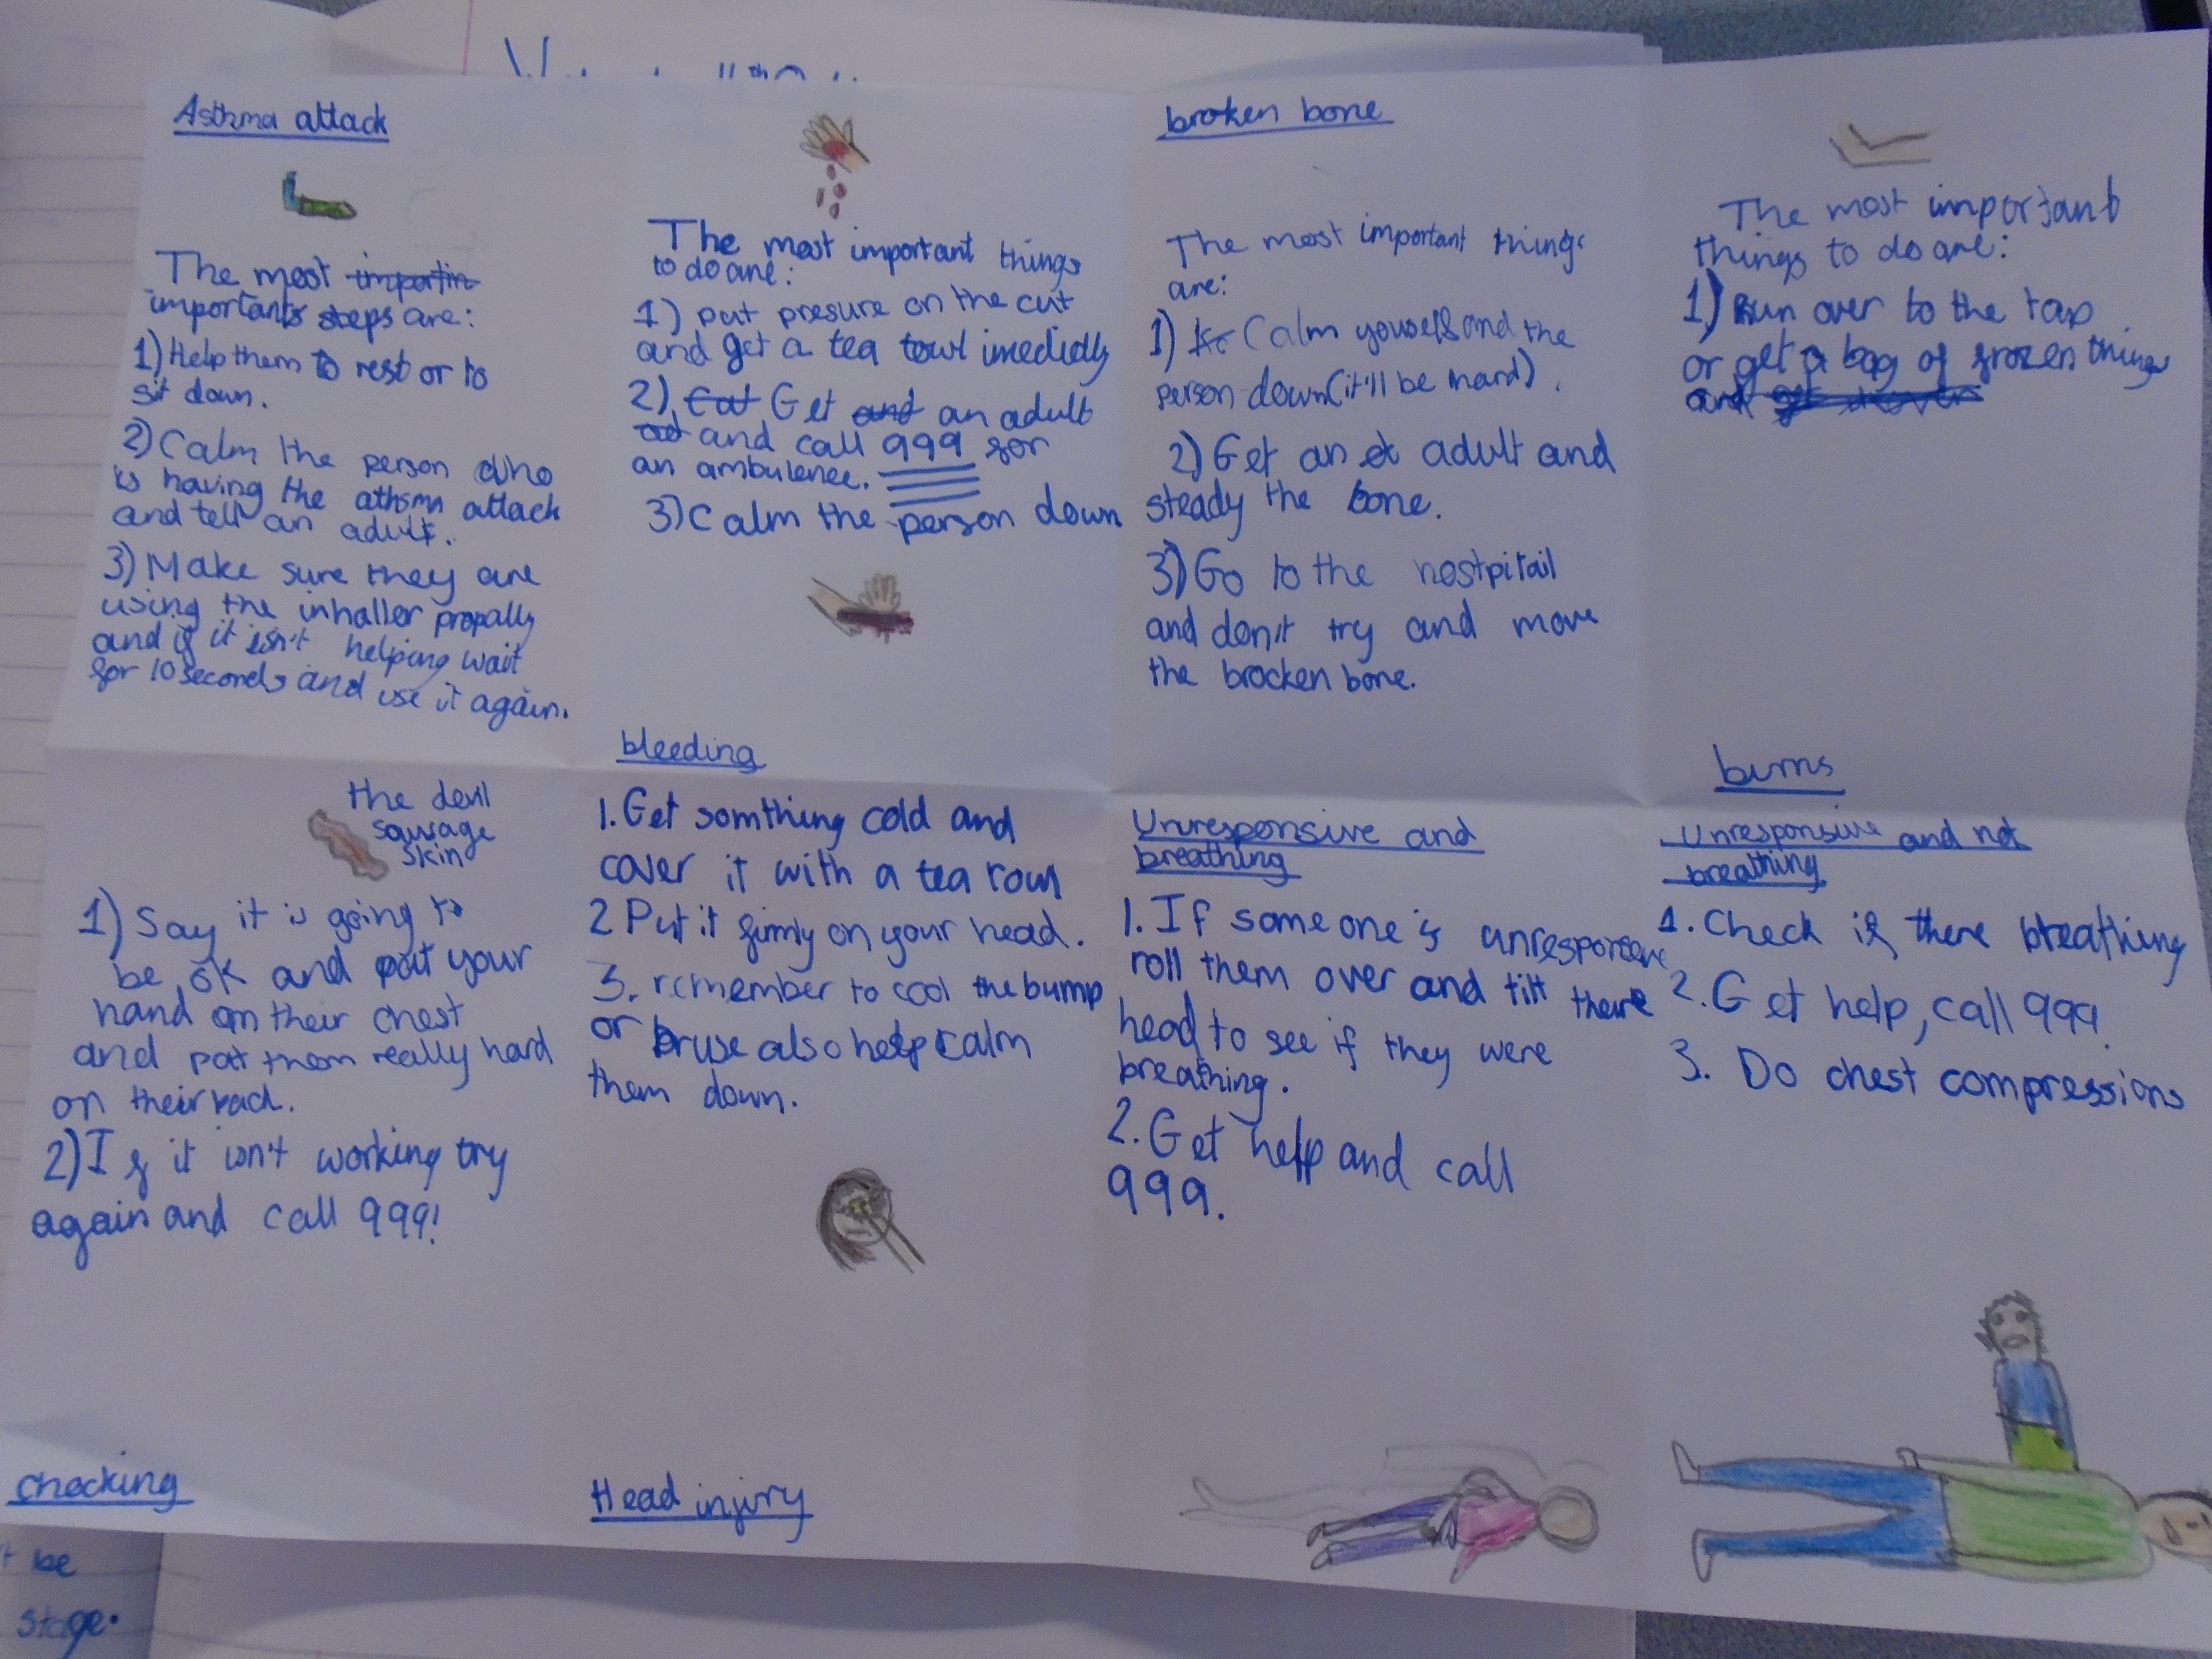 Asthma attack
The most importin
importants steps are:
1) Help them to rest or to
sit down.
2) Calm the person who
is having the athsma attack
and tell an adult.
3) Make sure they are
using the inhaller propally
and if it isn't helping wait
for 10 seconds and use it again.
The most important things
to do are:
1) put presure on the cut
and get a tea towl imediatly
2) Get and an adult
and call 999 for
an ambulence.
3) Calm the person down
bleeding
broken bone
The most important things
are:
1) Calm youself and the
person down (it'll be hard).
2) Get an adult and
steady the bone.
3) Go to the hostpitail
and don't try and move
the brocken bone.
The most important
things to do are:
1) Run over to the tap
or get a bag of frozen things
and
burns
the devil
sausage
skin
1) Say it is going to
be ok and put your
hand on their chest
and pat them really hard
on their back.
2) If it isn't working try
again and call 999!
chocking
1. Get somthing cold and
cover it with a tea towl
2 Put it firmly on your head.
3. remember to cool the bump
or bruse also help calm
them down.
Head injury
Unresponsive and
breathing
1. If someone is unresponsive
roll them over and tilt there
head to see if they were
breathing.
2. Get help and call
999.
Unresponsive and not
breathing
1. Check if there breathing
2. Get help, call 999.
3. Do chest compressions
t be
stage.